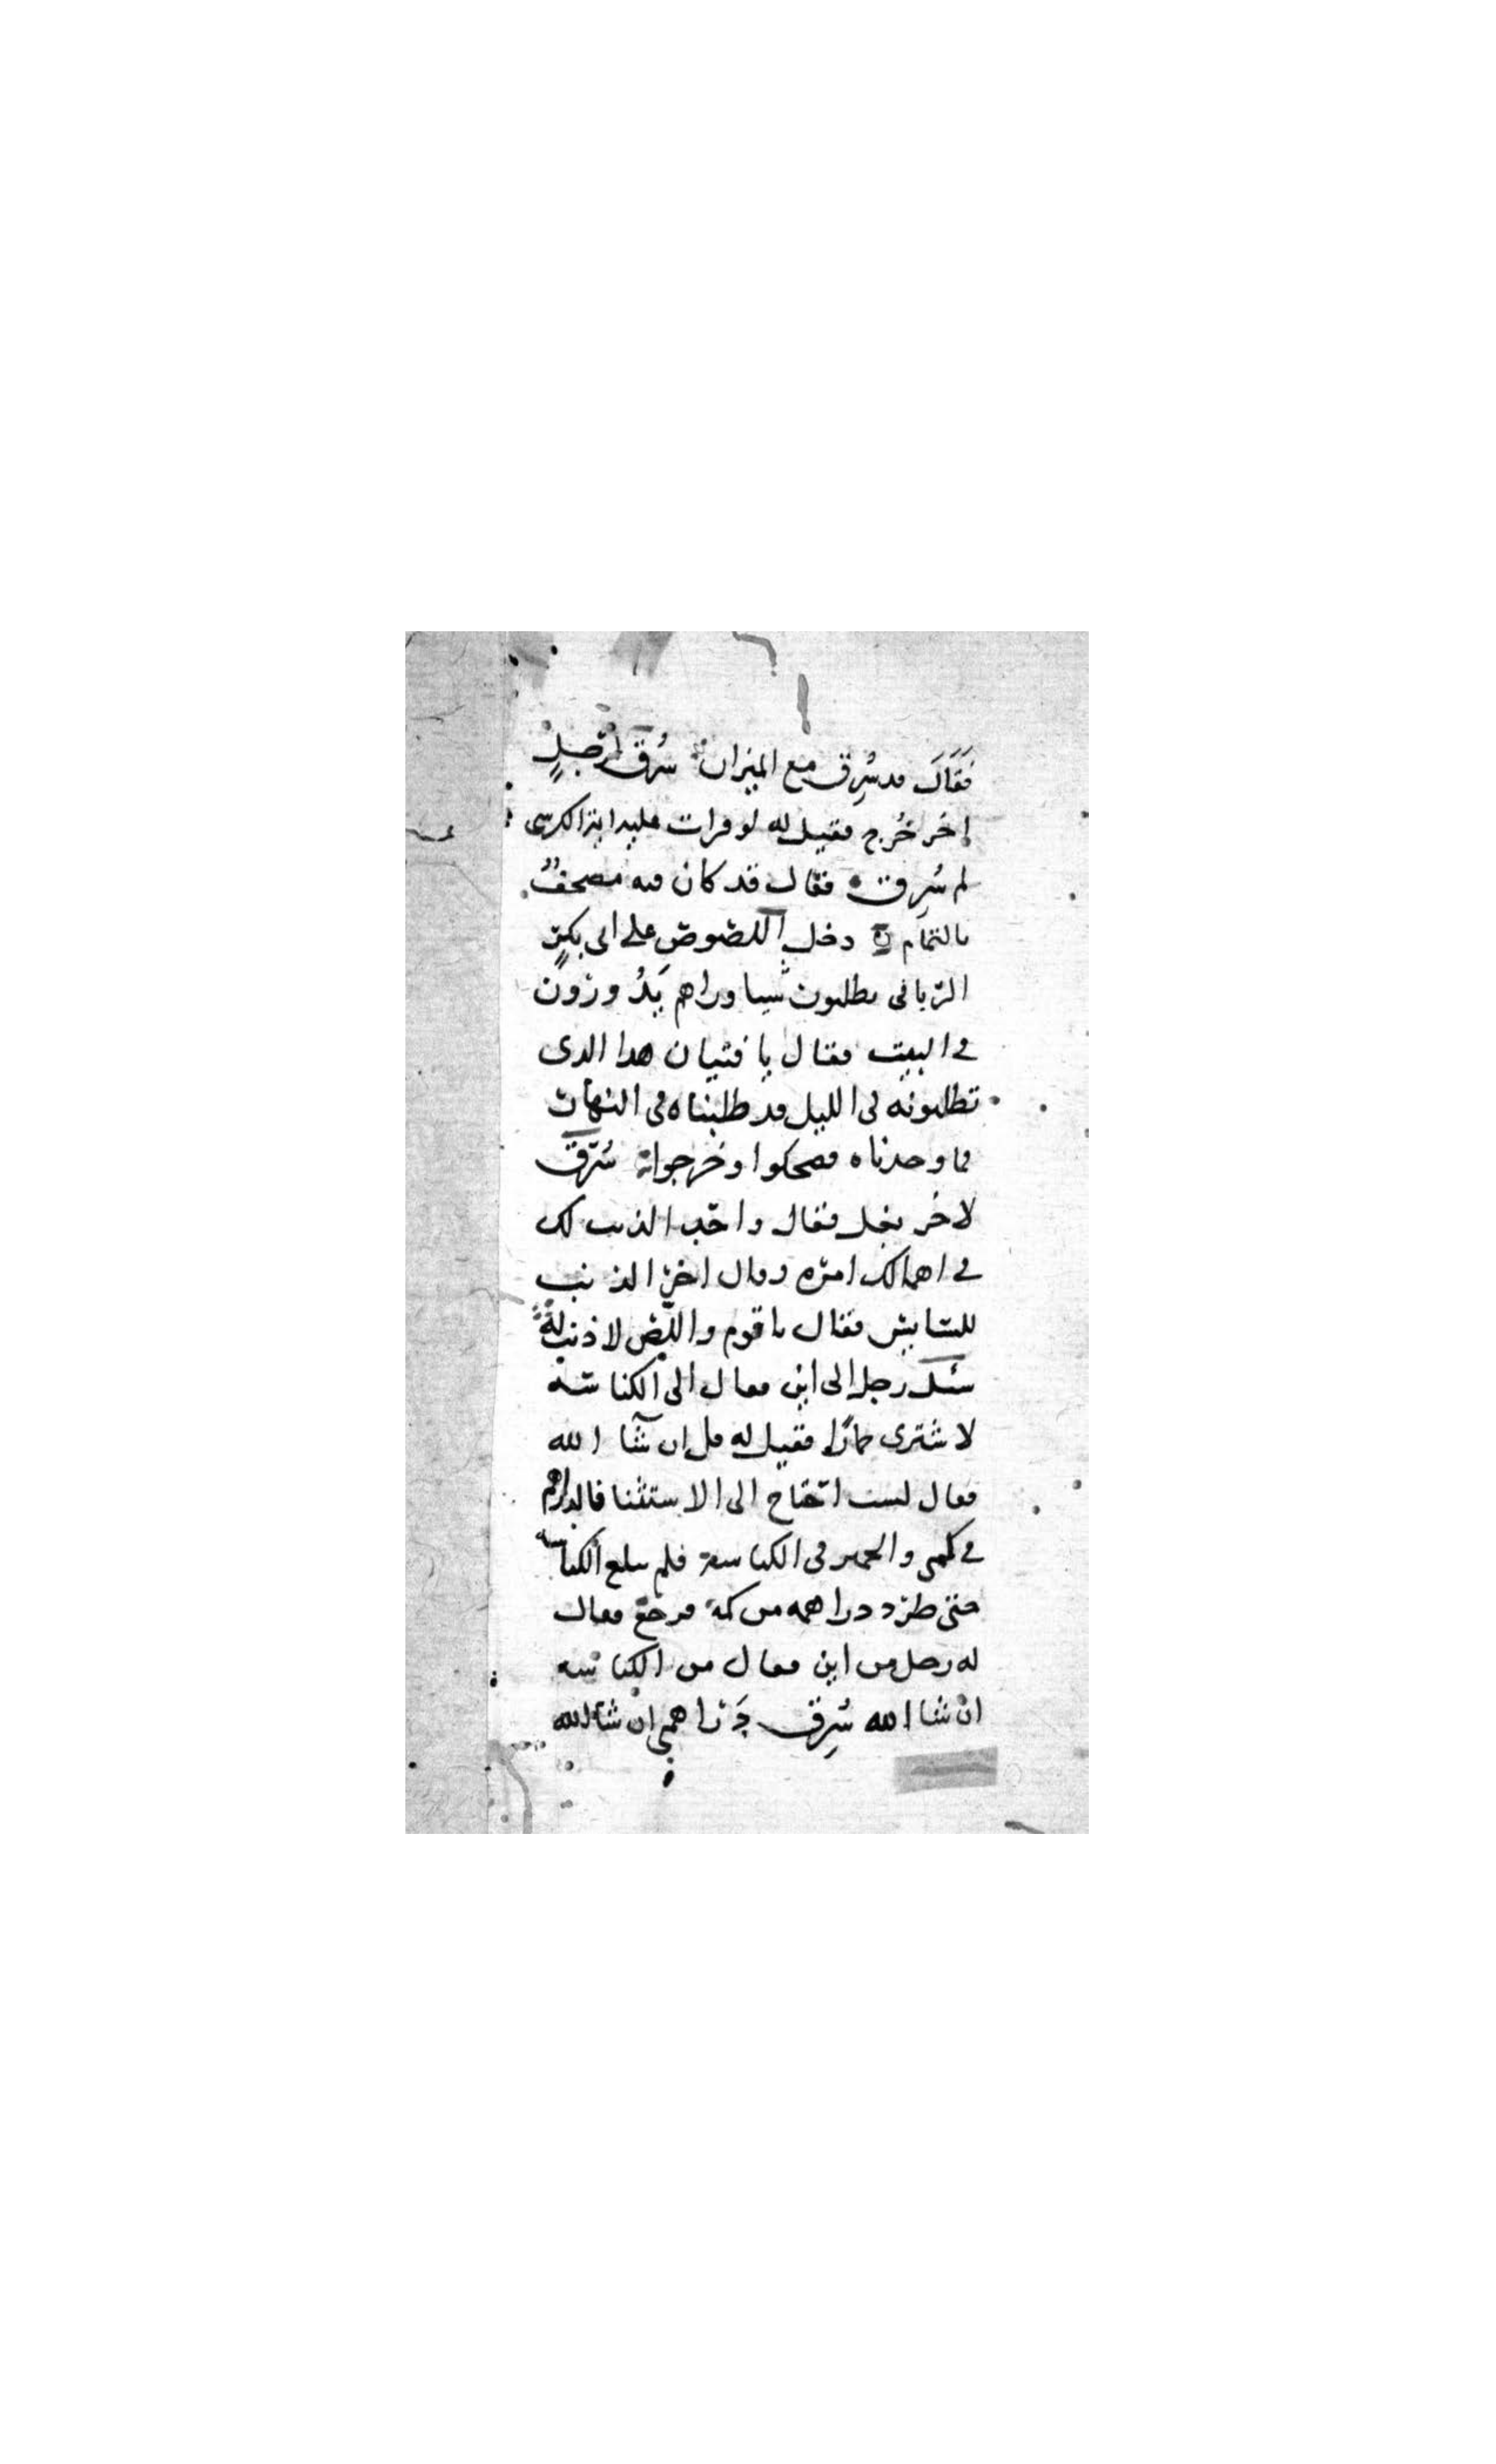 فَقَالَ قد سُرِق مع الميزان سُرق لرجلٍ
اخر خُرج فقيل له لو قرات عليه اية الكرسى
لم سُرِق فقال قد كان فيه مصحفٌ
بالتمام دخل اللصوص على ابى بكرٍ
الربانى يطلبون شيا وراهم يَدُورُون
فى البيت فقال يا فتيان هدا الدى
تطلبونه فى الليل قد طلبناه فى النهار
فما وجدناه فضحكوا وخرجوا سُرق
لاخر بغل فقال واحد الذنب لك
فى اهمالك امره وقال اخر الذنب
للسايس فقال يا قوم واللص لا ذنب له
سئل رجل الى اين فقال الى الكناسه
لاشترى حمارًا فقيل له قل ان شآ الله
فقال لست احتاج الى الاستثنا فالدراهم
فى كمى والحمير فى الكناسة فلم يبلغ الكناسه
حتى طرد دراهمه من كمه فرجع فقال
له رجل من اين فقال من الكناسه
ان شا الله سُرِق دَراهمى ان شآ الله